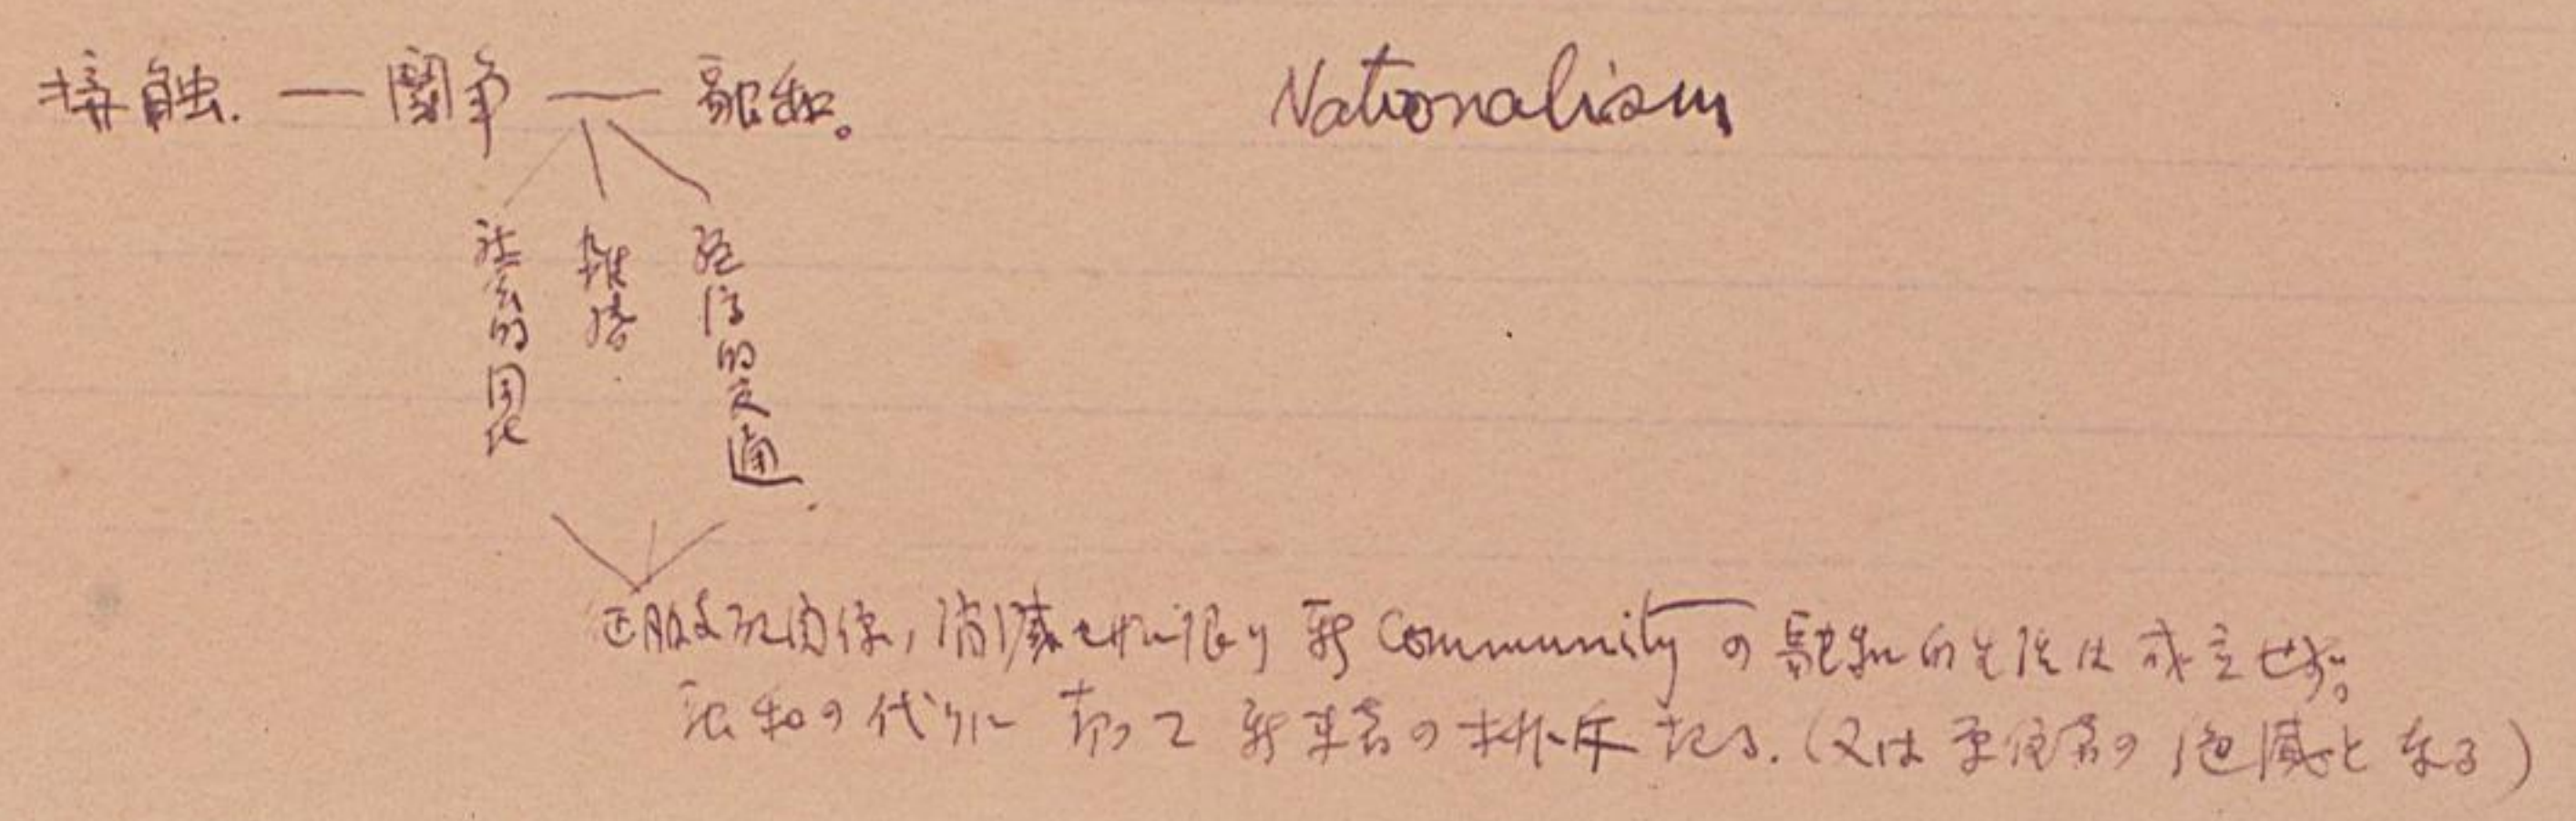 接触. — 闘争 — 融和。 Nationalism
社会的同化
雑婚.
経済的交通.
征服支配関係, 消滅せざる限り 新 Community の融和的生活は成立せず。
融和の代りに 却って 新来者の排斥起る. (又は 原住者の絶滅となる)